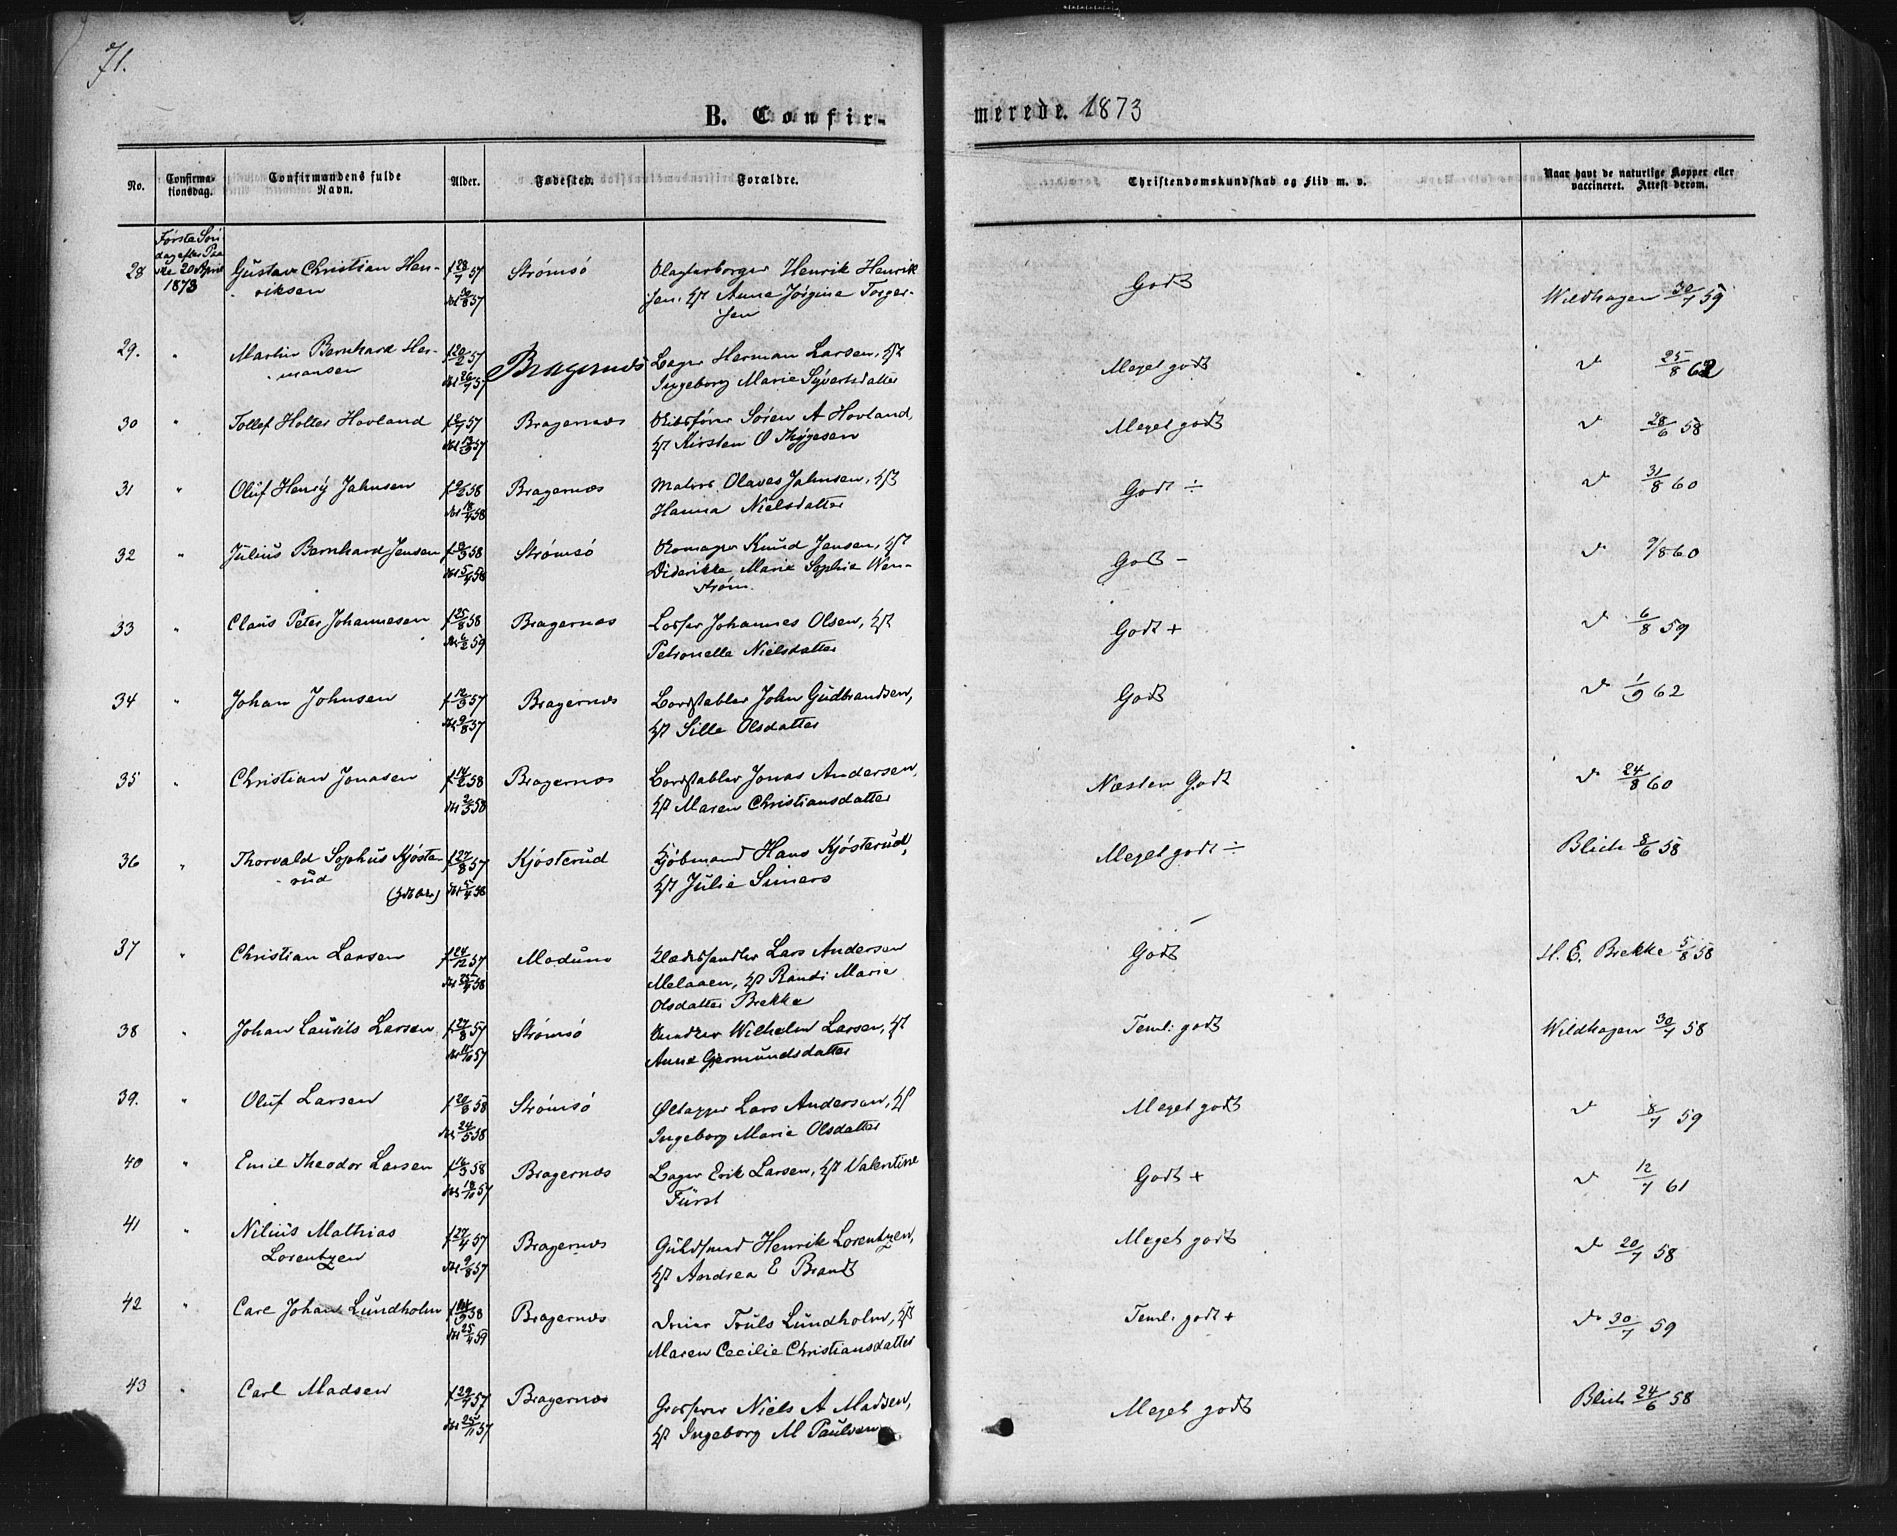 71.
B. Confir-
merede. 1873
No.
Confirma-
tionsdag.
Confirmandens fulde
Navn.
Alder.
Fødested.
Forældre.
Christendomskundskab og Flid m. v.
Naar havt de naturlige Kopper eller
vaccineret. Attest derom.
Første Søn
dag efter Paa
ske 20 April
1873
28 Gustav Christian Hen-
riksen
f 28/7 57
Strømsø
Henrik Henrik
sen, Anne Jørgine Torger-
sen
Godt
Wildhagen 30/7 59
29. " Martin Bernhard Her-
mansen
Bragernæs
Bager Herman Larsen,
Ingeborg Marie Syvertsdatter
Meget godt
d 25/8 62
30 " Tollef Holter Hovland
57
Bragernæs
Søren A Hovland,
Kirsten O Thygesen
Meget godt
d 28/6 58
31 " Oluf Henry Jahnsen
58
Bragernæs
Olaves Jahnsen,
Hanna Nielsdatter
Godt ÷
d 31/8 60
32 " Julius Bernhard Jensen
58
Strømsø
Knud Jensen,
Diderikke Marie Sophie Wen-
strøm
Godt -
d 9/8 60
33 " Claus Peter Johannesen
f 25/8 58
59
Bragernæs
Johannes Olsen,
Petronelle Nielsdatter
Godt +
d 6/8 59
34 " Johan Johnsen
57
Bragernæs
Bordstabler John Gudbrandsen,
Sille Olsdatter
Godt
d 1/9 62
35 " Christian Jonasen
58
Bragernæs
Bordstabler Jonas Andersen,
Maren Christiansdatter
Næsten Godt
d 24/8 60
36 " Thorvald Sophus Kjøste-
rud
f 27/8 57
Kjøsterud
Kjøbmand Hans Kjøsterud,
Julie Simers
Meget godt ÷
Blich 8/6 58
37 " Christian Larsen
f 24/12 57
Modum
Lars Andersen
Melaaen, Randi Marie
Olsdatter Brekke
Godt
H. E. Brekke 5/8 58
38 " Johan Laurits Larsen
f 27/8 57
Strømsø
Wilhelm Larsen,
Anne Gjermundsdatter
Teml: godt
Wildhagen 30/7 58
39. " Oluf Larsen
f 20/3 58
24/5 58
Strømsø
Øltapper Lars Andersen,
Ingeborg Marie Olsdatter
Meget godt
d 8/7 59
40 " Emil Theodor Larsen
58
57
Bragernæs
Bager Erik Larsen, Valentine
Fürst
Godt +
d 12/7 61
41 " Nilius Mathias
Lorentzen
f 27/4 57
9/8 57
Bragernæs
Guldsmed Henrik Lorentzen,
Andrea E Brandt
Meget godt
d 20/7 58
42 " Carl Johan Lundholm
58
59
Bragernæs
Truls Lundholm,
Maren Cecilie Christiansdatter
Teml: godt +
d 30/7 59
43 " Carl Madsen
57
25/11 57
Bragernæs
Niels A Madsen,
Ingeborg M Paulsen
Meget godt
Blich 24/6 58